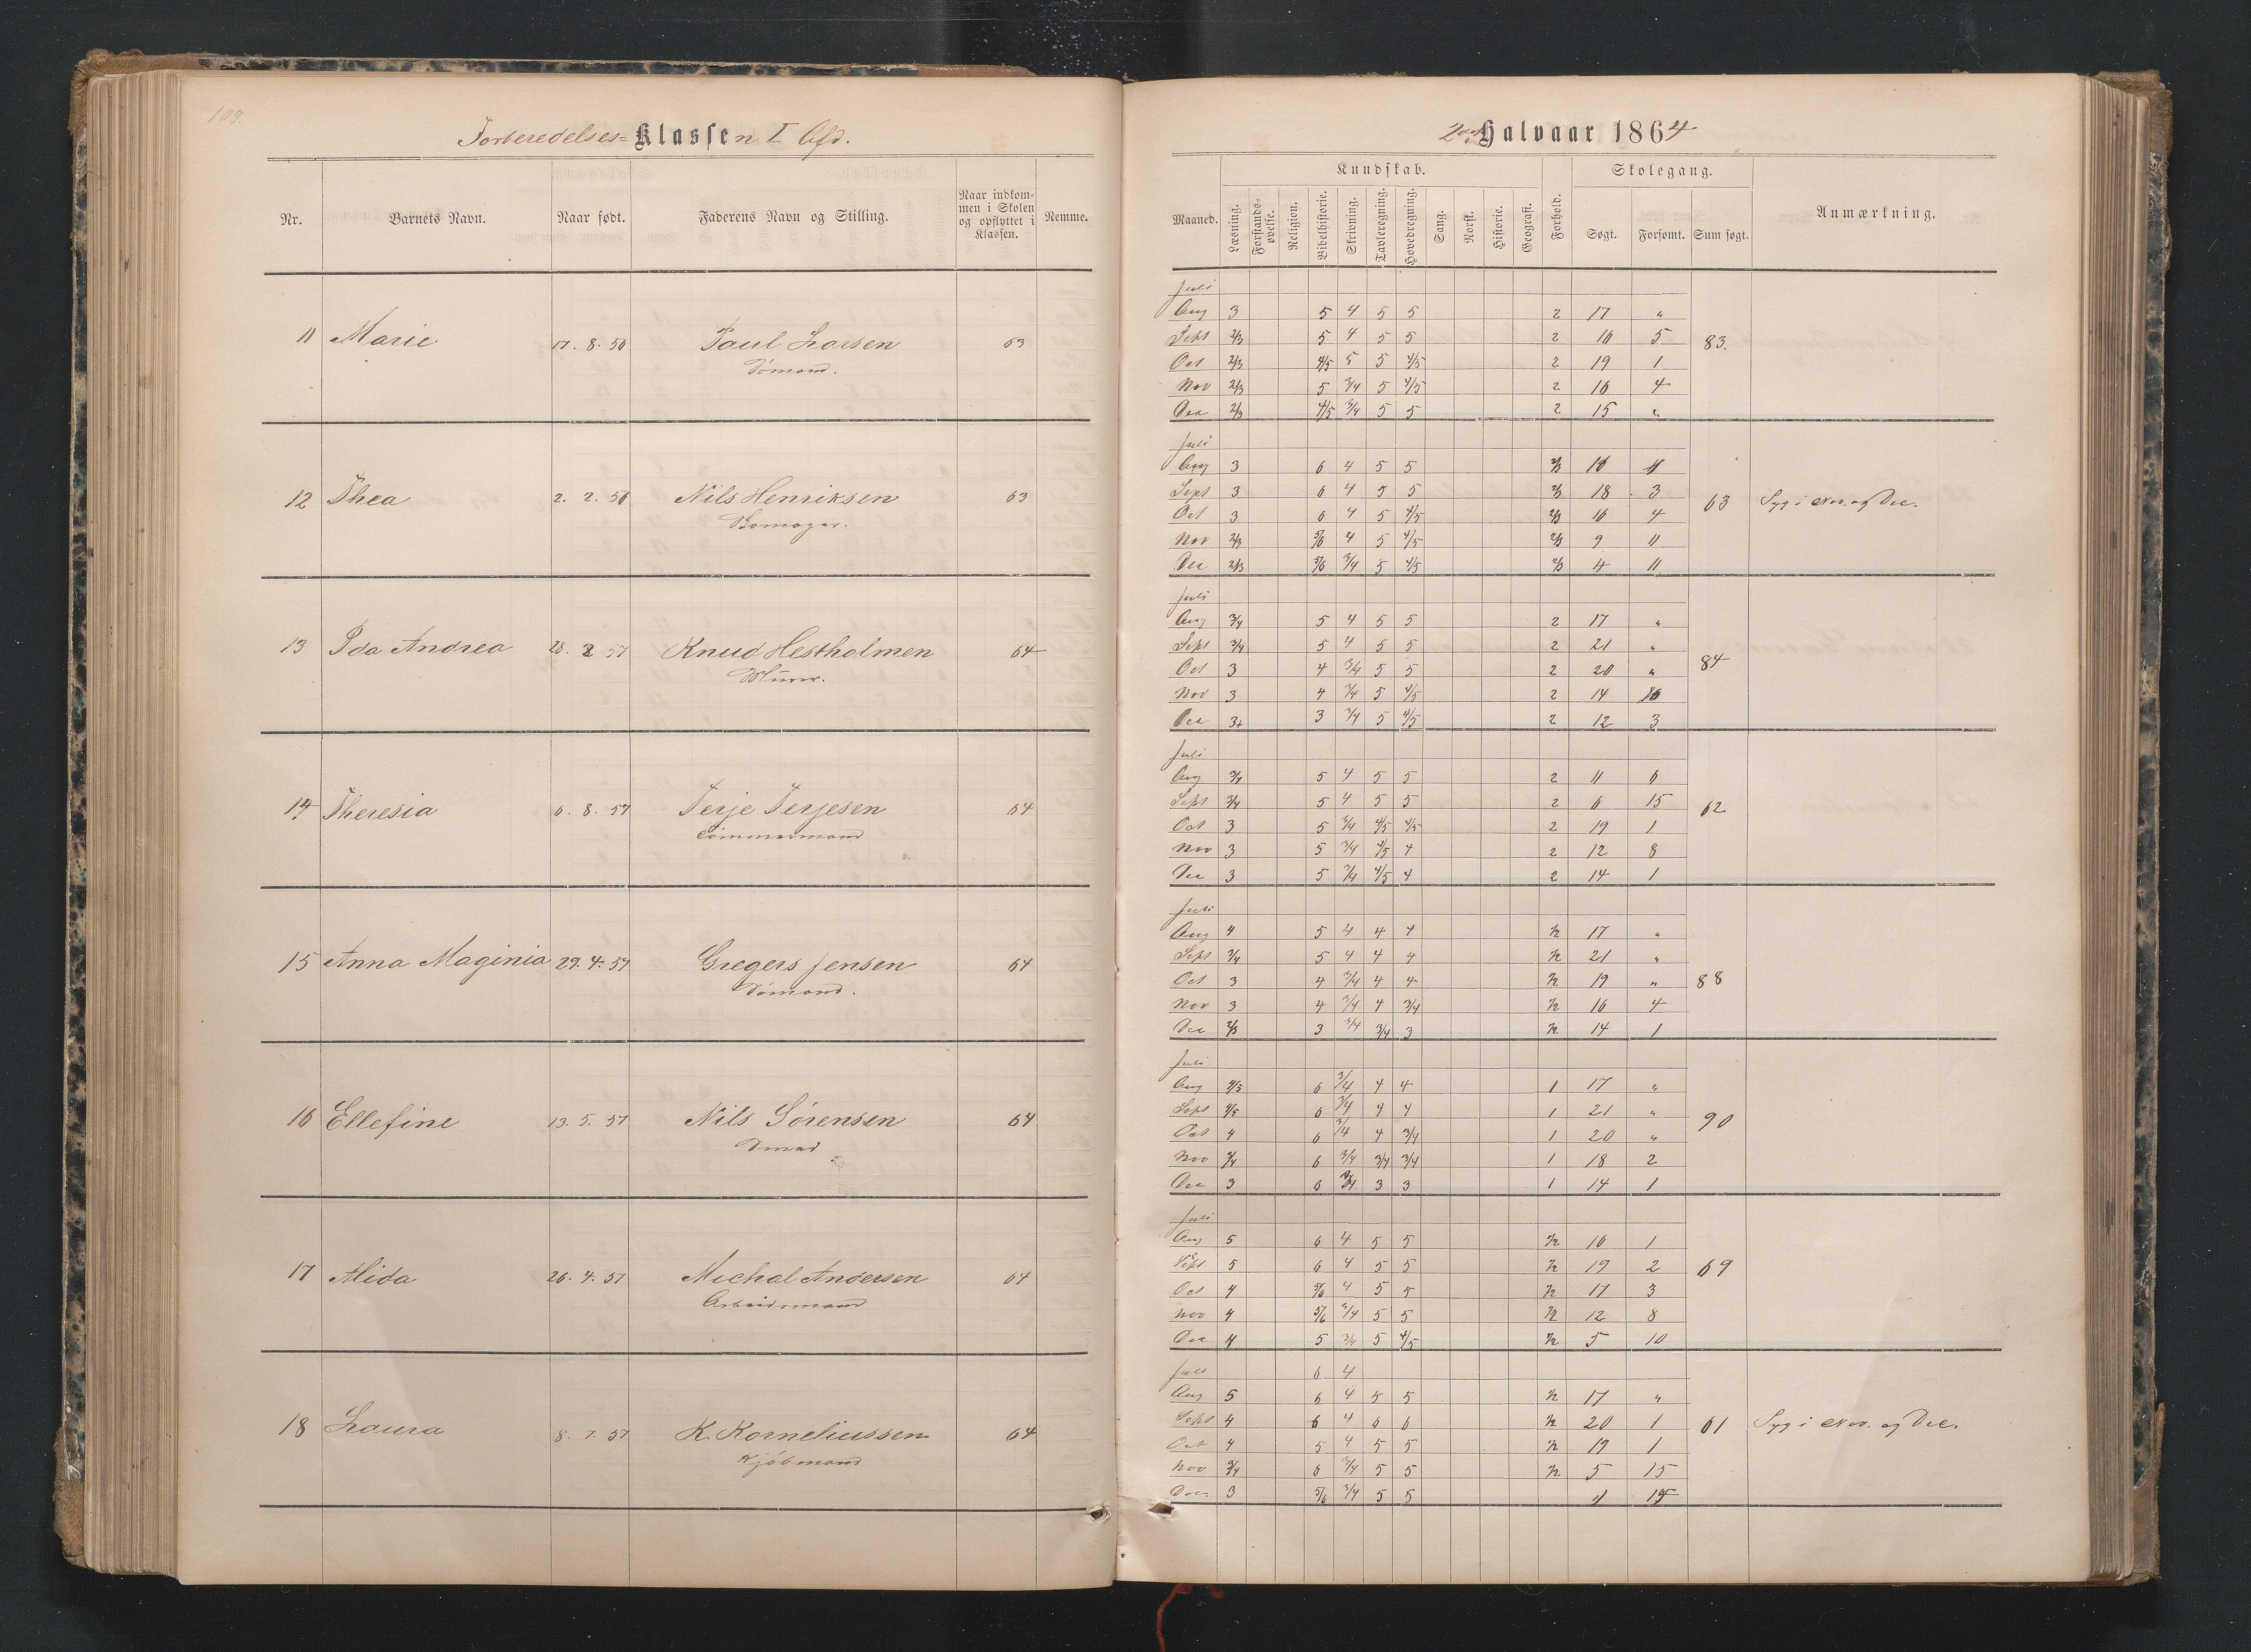 109.
Forberedelses=Klassen I Afd.
Nr. Barnets Navn. Naar født. Faderens Navn og Stilling. Naar indkommen i Skolen og opflyttet i Klassen. Nemme.
11 Marie 17. 8. 56 Paul Larsen 63
Sømand.
12 Thea 2. 2. 56 Nils Henriksen 63
13 Ida Andrea 28. 2 57 Knud Hestholmen 64
Murer.
14 Theresia 6. 8. 57 Terje Terjesen 64
Tømmermand
15 Anna Maginia 29. 4. 57 Gregers Jensen 64
Sømand.
16 Ellefine 13. 5. 57 Nils Sørensen 64
Smed
17 Alida 26. 4. 57 Michal Andersen 64
Arbeidsmand
18 Laura 8. 7. 57 K. Korneliussen 64
Kjöbmand
2det Halvaar 1864
Kundskab. Skolegang.
Maaned. Læsning. Forstands-øvelse. Religion. Bibelhistorie. Skrivning. Tavleregning. Hovedregning. Sang. Norsk. Historie. Geografi. Forhold. Søgt. Forsømt. Sum søgt. Anmærkning.
Juli
Aug 3 5 4 5 5 2 17 "
Sept 2/3 5 4 5 5 2 16 5 83.
Oct 2/3 4/5 5 5 4/5 2 19 1
Nov 2/3 5 3/4 5 4/5 2 16 4
Dec 2/3 4/5 3/4 5 5 2 15 "
Juli
Aug 3 6 4 5 5 2/3 16
Sept 3 6 4 5 5 2/3 18 3 63 Syg i Nov. og Dec.
Oct 3 6 4 5 4/5 2/3 16 4
Nov 2/3 5/6 4 5 4/5 2/3 9 11
Dec 2/3 5/6 3/4 5 4/5 2/3 4 11
Juli
Aug 3/4 5 4 5 5 2 17 "
Sept 3/4 5 4 5 5 2 21 "
Oct 3 4 3/4 5 5 2 20 " 84
Nov 3 4 3/4 5 4/5 2 14 6
Dec 3+ 3 3/4 5 4/5 2 12 3
Juli
Aug 3/4 5 4 5 5 2 11 6
Sept 3/4 5 4 5 5 2 6 15 62
Oct 3 5 3/4 4/5 4/5 2 19 1
Nov 3 5 3/4 4/5 4 2 12 8
Dec 3 5 3/4 4/5 4 2 14 1
Juli
Aug 4 5 4 4 4 1/2 17 "
Sept 3/4 5 4 4 4 1/2 21 "
Oct 3 4 3/4 4 4 1/2 19 " 88
Nov 3 4 3/4 4 3/4 1/2 16 4
Dec 2/3 3 3/4 3/4 3 1/2 14 1
Juli
Aug 4/5 6 3/4 4 4 1 17 "
Sept 4/5 6 3/4 4 4 1 21 "
Oct 4 6 3/4 4 3/4 1 20 " 90
Nov 3/4 6 3/4 3/4 3/4 1 18 2
Dec 3 6 3/4 3 3 1 14 1
Juli
Aug 5 6 4 5 5 1/2 16 1
Sept 5 6 4 5 5 1/2 19 2 69
Oct 4 5/6 4 5 5 1/2 17 3
Nov 4 5/6 3/4 5 5 1/2 12 8
Dec 4 5 3/4 5 4/5 1/2 5 10
Juli 6 4
Aug 5 6 4 5 5 1/2 17 "
Sept 4 6 4 6 6 1/2 20 1 61 Syg i Nov. og Dec.
Oct 4 5 4 5 5 1/2 19 1
Nov 3/4 6 3/4 5 5 1/2 5 15
Dec. 3 5/6 3/4 5 5 15